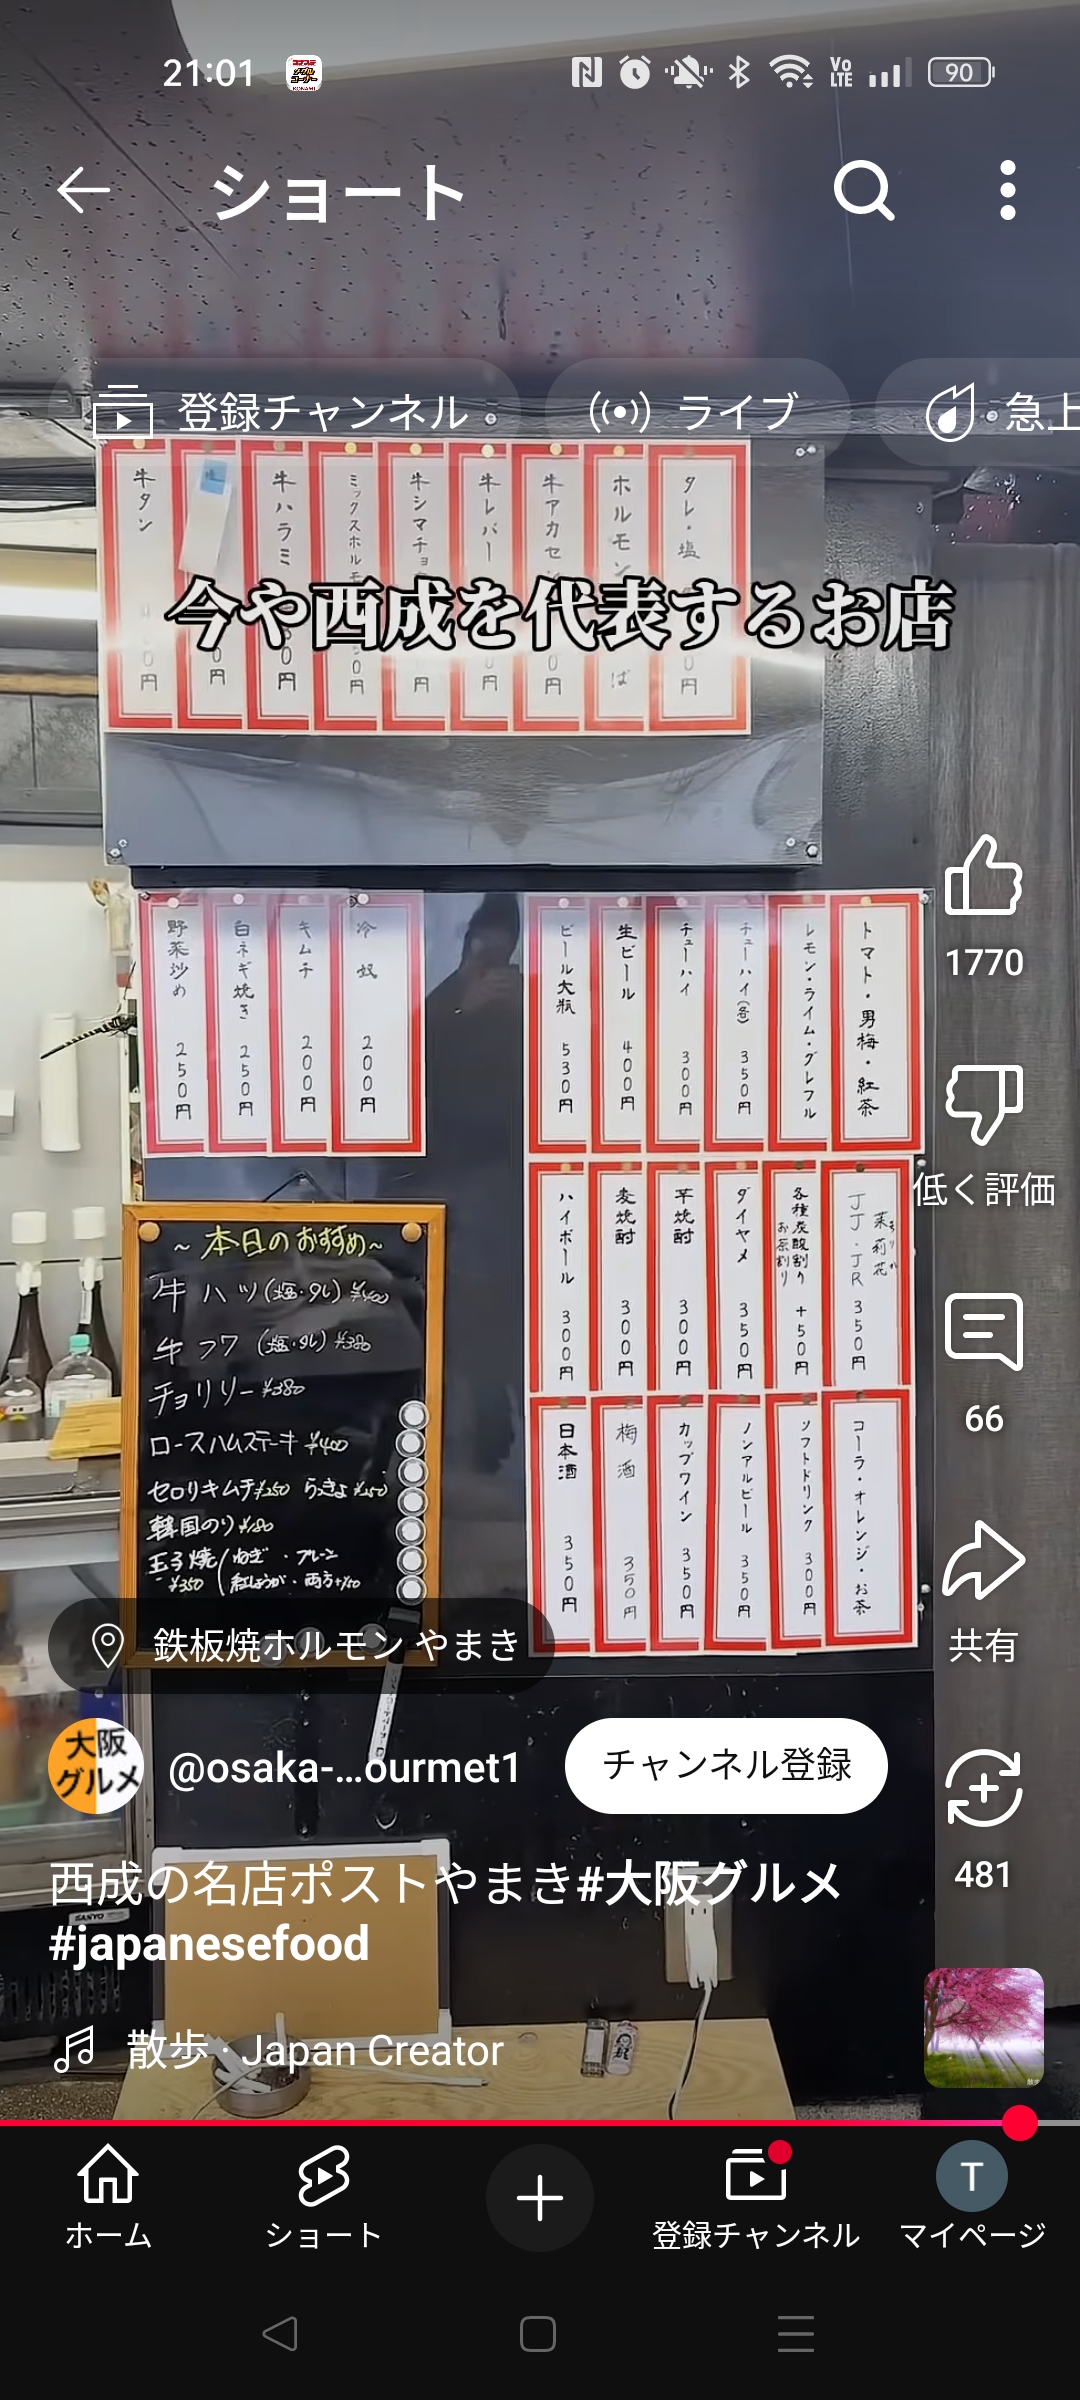 21:01
Vo LTE
90
ショート
登録チャンネル
ライブ
急上
牛タン
牛ハラミ
円
ミックスホルモ
円
牛シマチョ
円
牛レバー
円
牛アカセン
円
ホルモン
ば
タレ・塩
円
今や西成を代表するお店
野菜炒め 250円
白ネギ焼き 250円
キムチ 200円
冷奴 200円
ビール大瓶 530円
生ビール 400円
チューハイ 300円
チューハイ(各) 350円
レモン・ライム・グレフル
トマト・男梅・紅茶
ハイボール 300円
麦焼酎 300円
芋焼酎 300円
ダイヤメ 350円
各種炭酸割り お茶割り +50円
JJ・JR 茉莉花 350円
日本酒 350円
梅酒 350円
カップワイン 350円
ノンアルビール 350円
ソフトドリンク 300円
コーラ・オレンジ・お茶
~本日のおすすめ~
牛ハツ(塩・タレ) ¥400
牛フワ(塩・タレ) ¥380
チョリソー ¥380
ロースハムステーキ ¥400
セロリキムチ ¥250 らっきょ ¥250
韓国のり ¥180
玉子焼 ねぎ・プレーン
¥350 紅しょうが・両方+¥50
1770
低く評価
66
共有
481
鉄板焼ホルモン やまき
大阪グルメ
@osaka-…ourmet1
チャンネル登録
西成の名店ポストやまき#大阪グルメ
#japanesefood
散歩 · Japan Creator
ホーム
ショート
登録チャンネル
T
マイページ